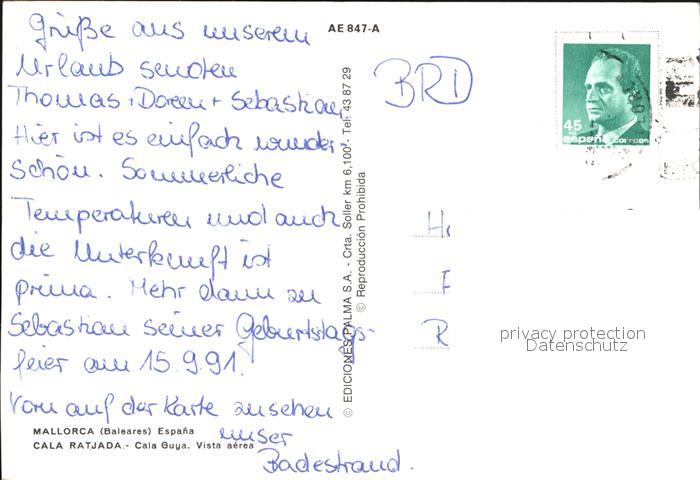 AE 847-A
Grüße aus unserem
Urlaub senden
Thomas, Doreen + Sebastian
Hier ist es einfach wunder-
schön. Sommerliche
Temperaturen und auch
die Unterkunft ist
prima. Mehr dann zu
Sebastian seiner Geburtstags-
feier am 15.9.91.
Vorn auf der Karte zu sehen
unser
Badestrand.
MALLORCA (Baleares) España
CALA RATJADA.- Cala Guya. Vista aérea
© EDICIONES PALMA S.A. - Crta. Soller km 6,100 - Tel: 43 87 29
© Reproducción Prohibida
BRD
45
españa correos
H
F
R
privacy protection
Datenschutz